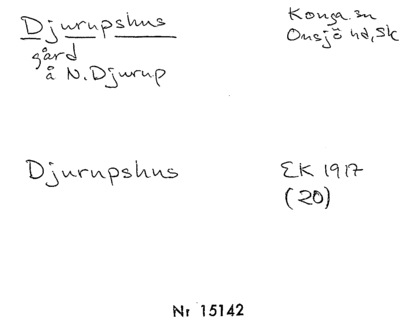 Djurupshus
gård
å N. Djurup
Konga sn
Onsjö hd, Sk
Djurupshus
EK 1917
(20)
Nr 15142